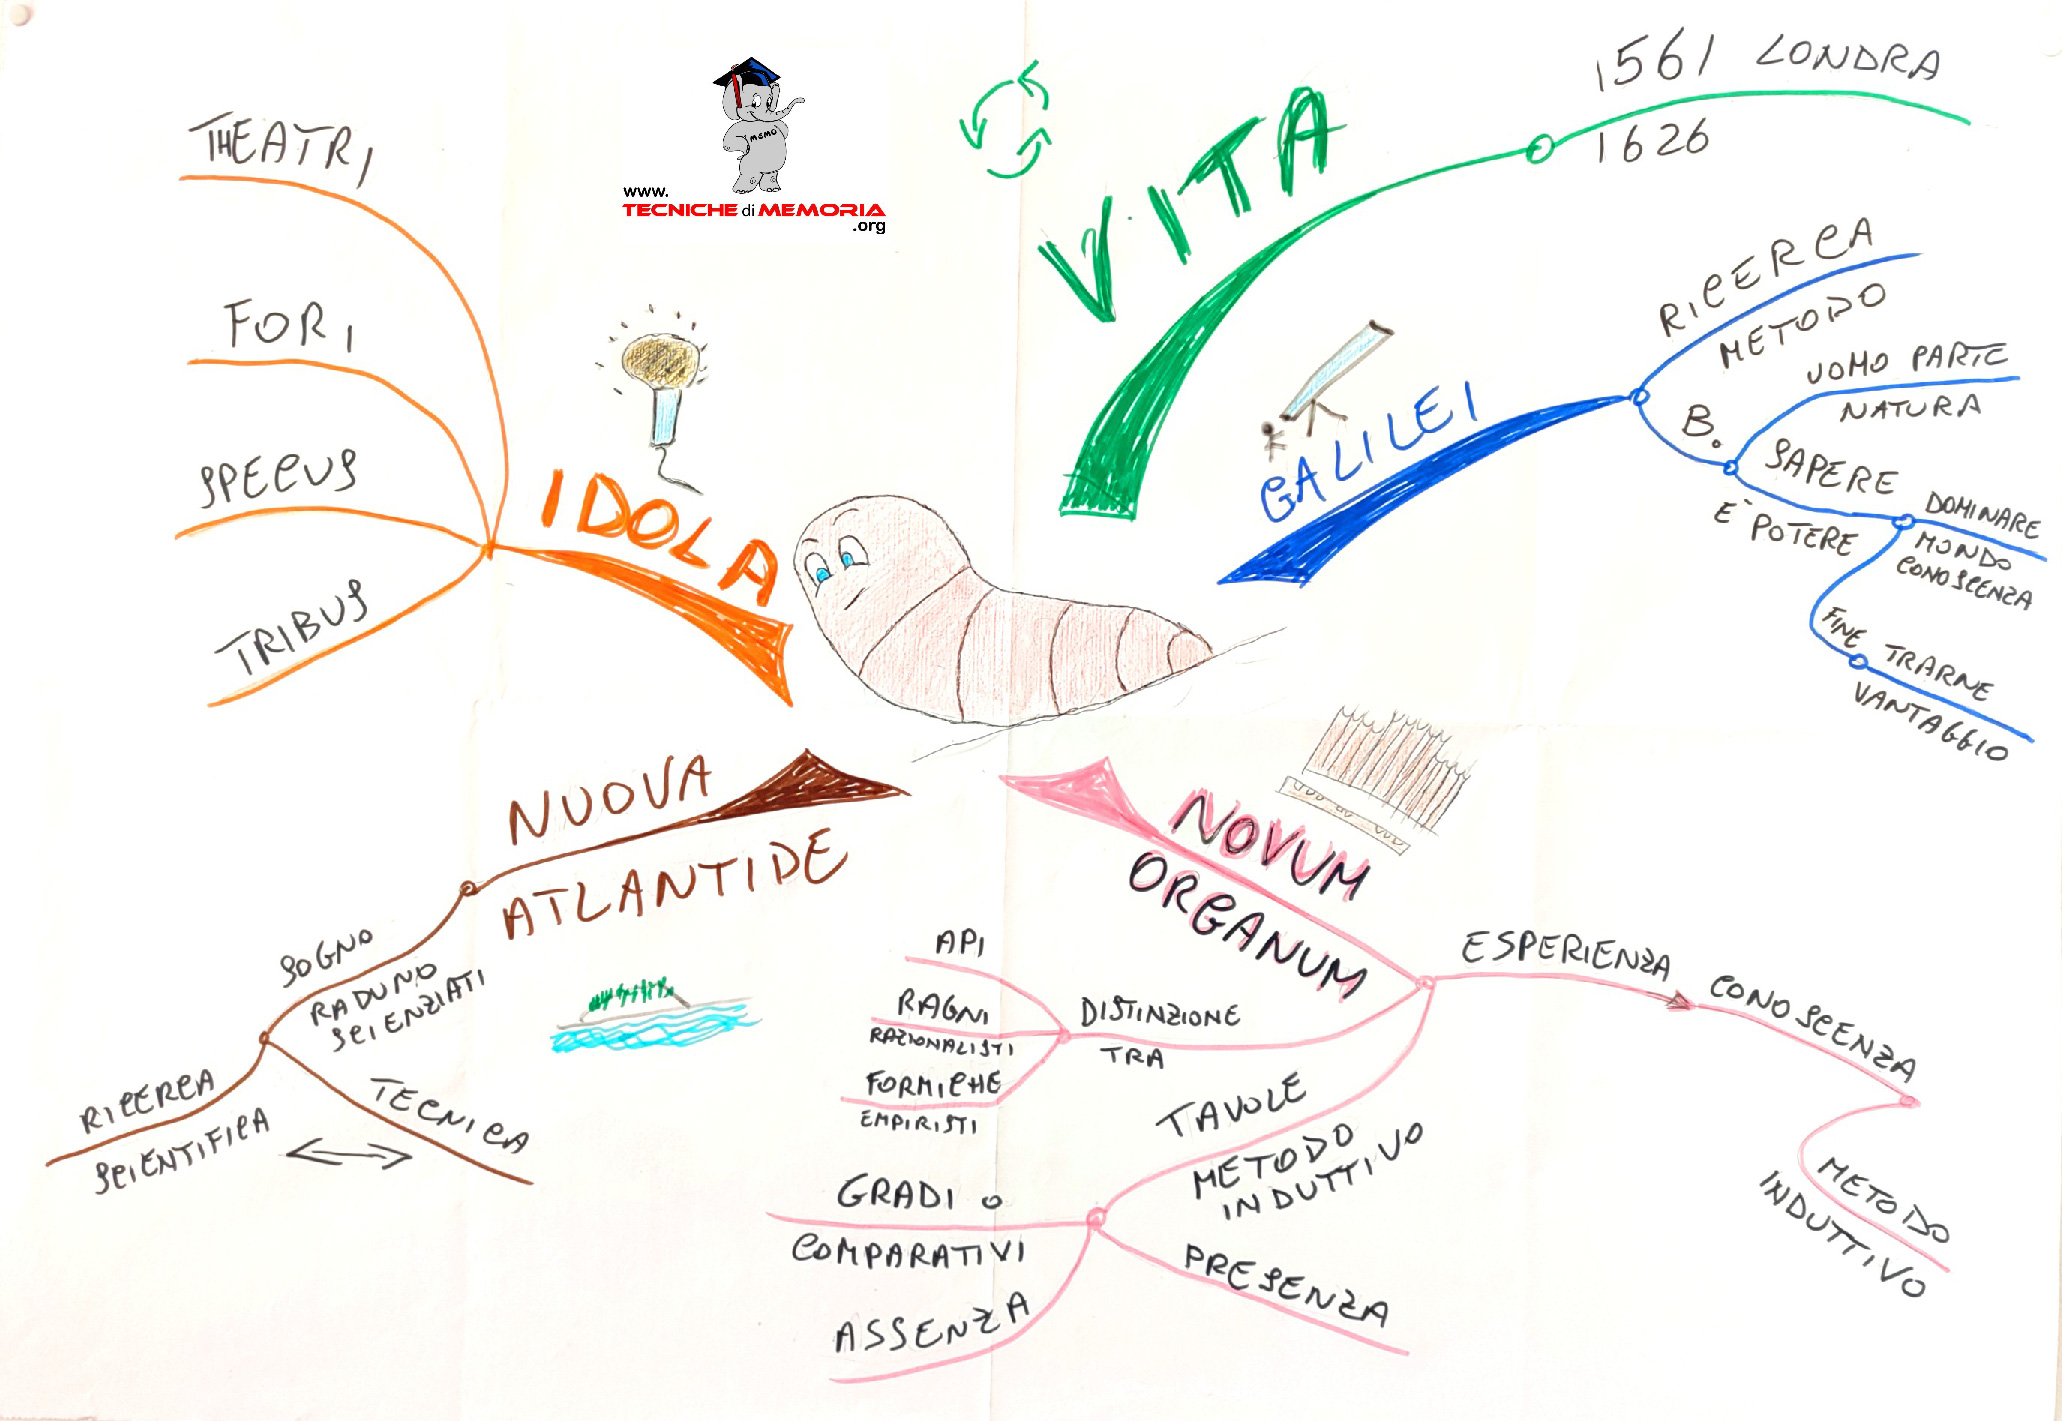 www.
TECNICHE di MEMORIA
.org
MEMO
VITA
1561 LONDRA
1626
GALILEI
RICERCA
METODO
B.
UOMO PARTE
NATURA
SAPERE
E' POTERE
DOMINARE
MONDO
CONOSCENZA
FINE
TRARNE
VANTAGGIO
NOVUM
ORGANUM
ESPERIENZA
CONOSCENZA
METODO
INDUTTIVO
DISTINZIONE
TRA
API
RAGNI
RAZIONALISTI
FORMICHE
EMPIRISTI
TAVOLE
METODO
INDUTTIVO
GRADI O
COMPARATIVI
ASSENZA
PRESENZA
NUOVA
ATLANTIDE
SOGNO
RADUNO
SCIENZIATI
RICERCA
SCIENTIFICA
TECNICA
IDOLA
THEATRI
FORI
SPECUS
TRIBUS